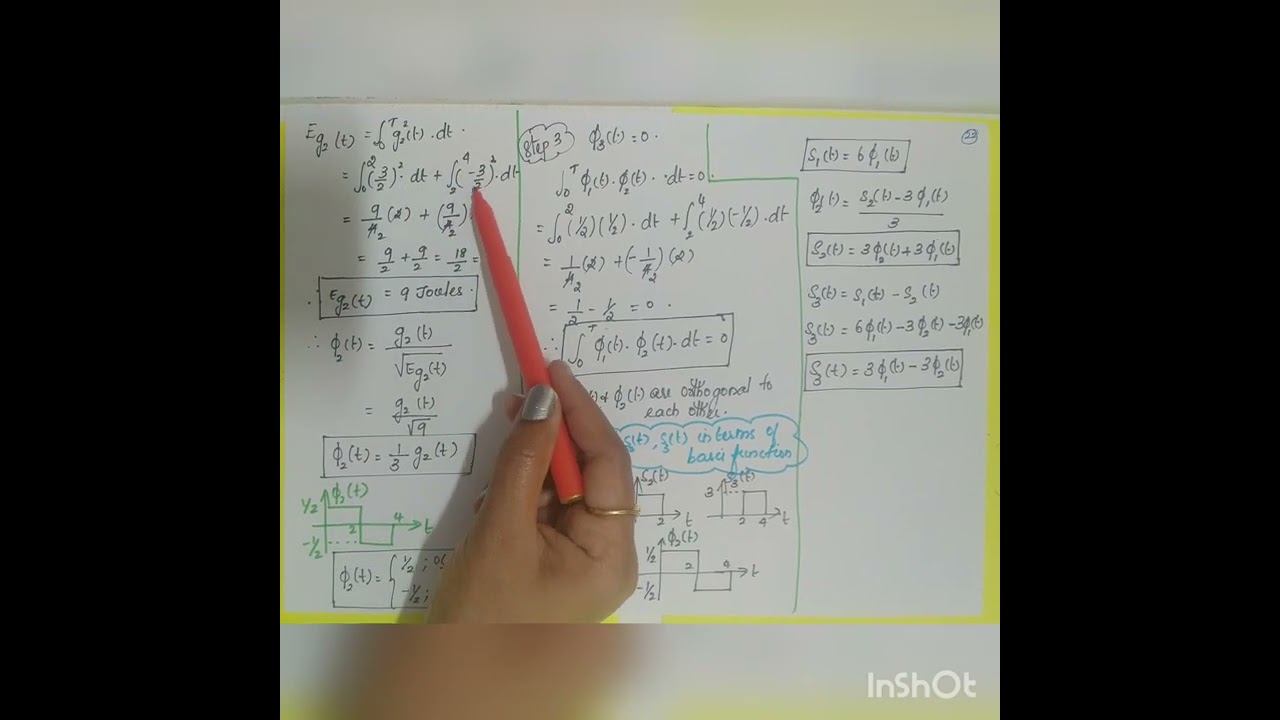 E_{g_2}(t) = ∫_0^T g_2^2(t) . dt .
= ∫_0^2 (3/2)^2 . dt + ∫_2^4 (-3/2)^2 . dt
= 9/4_2 (2) + (9/4_2)
= 9/2 + 9/2 = 18/2 =
∴ E_{g_2}(t) = 9 Joules .
∴ ϕ_2(t) = g_2(t) / √E_{g_2}(t)
= g_2(t) / √9
ϕ_2(t) = 1/3 g_2(t)
ϕ_2(t)
1/2
2 4 t
-1/2
ϕ_2(t) = { 1/2 ; 0
-1/2 ;
Step 3 ϕ_3(t) = 0 .
∫_0^T ϕ_1(t) . ϕ_2(t) . dt = 0 .
= ∫_0^2 (1/2)(1/2) . dt + ∫_2^4 (1/2)(-1/2) . dt
= 1/4_2 (2) + (-1/4_2)(2)
= 1/2 - 1/2 = 0 .
∴ ∫_0^T ϕ_1(t) . ϕ_2(t) . dt = 0
(t) & ϕ_2(t) are orthogonal to
each other.
(t), S_3(t) in terms of
basis function
S_2(t)
2 t
S_3(t)
3
2 4 t
ϕ_2(t)
1/2
2 4 t
-1/2
22
S_1(t) = 6 ϕ_1(t)
ϕ_2(t) = S_2(t) - 3ϕ_1(t) / 3
S_2(t) = 3ϕ_2(t) + 3ϕ_1(t)
S_3(t) = S_1(t) - S_2(t)
S_3(t) = 6ϕ_1(t) - 3ϕ_2(t) - 3ϕ_1(t)
S_3(t) = 3ϕ_1(t) - 3ϕ_2(t)
InShOt